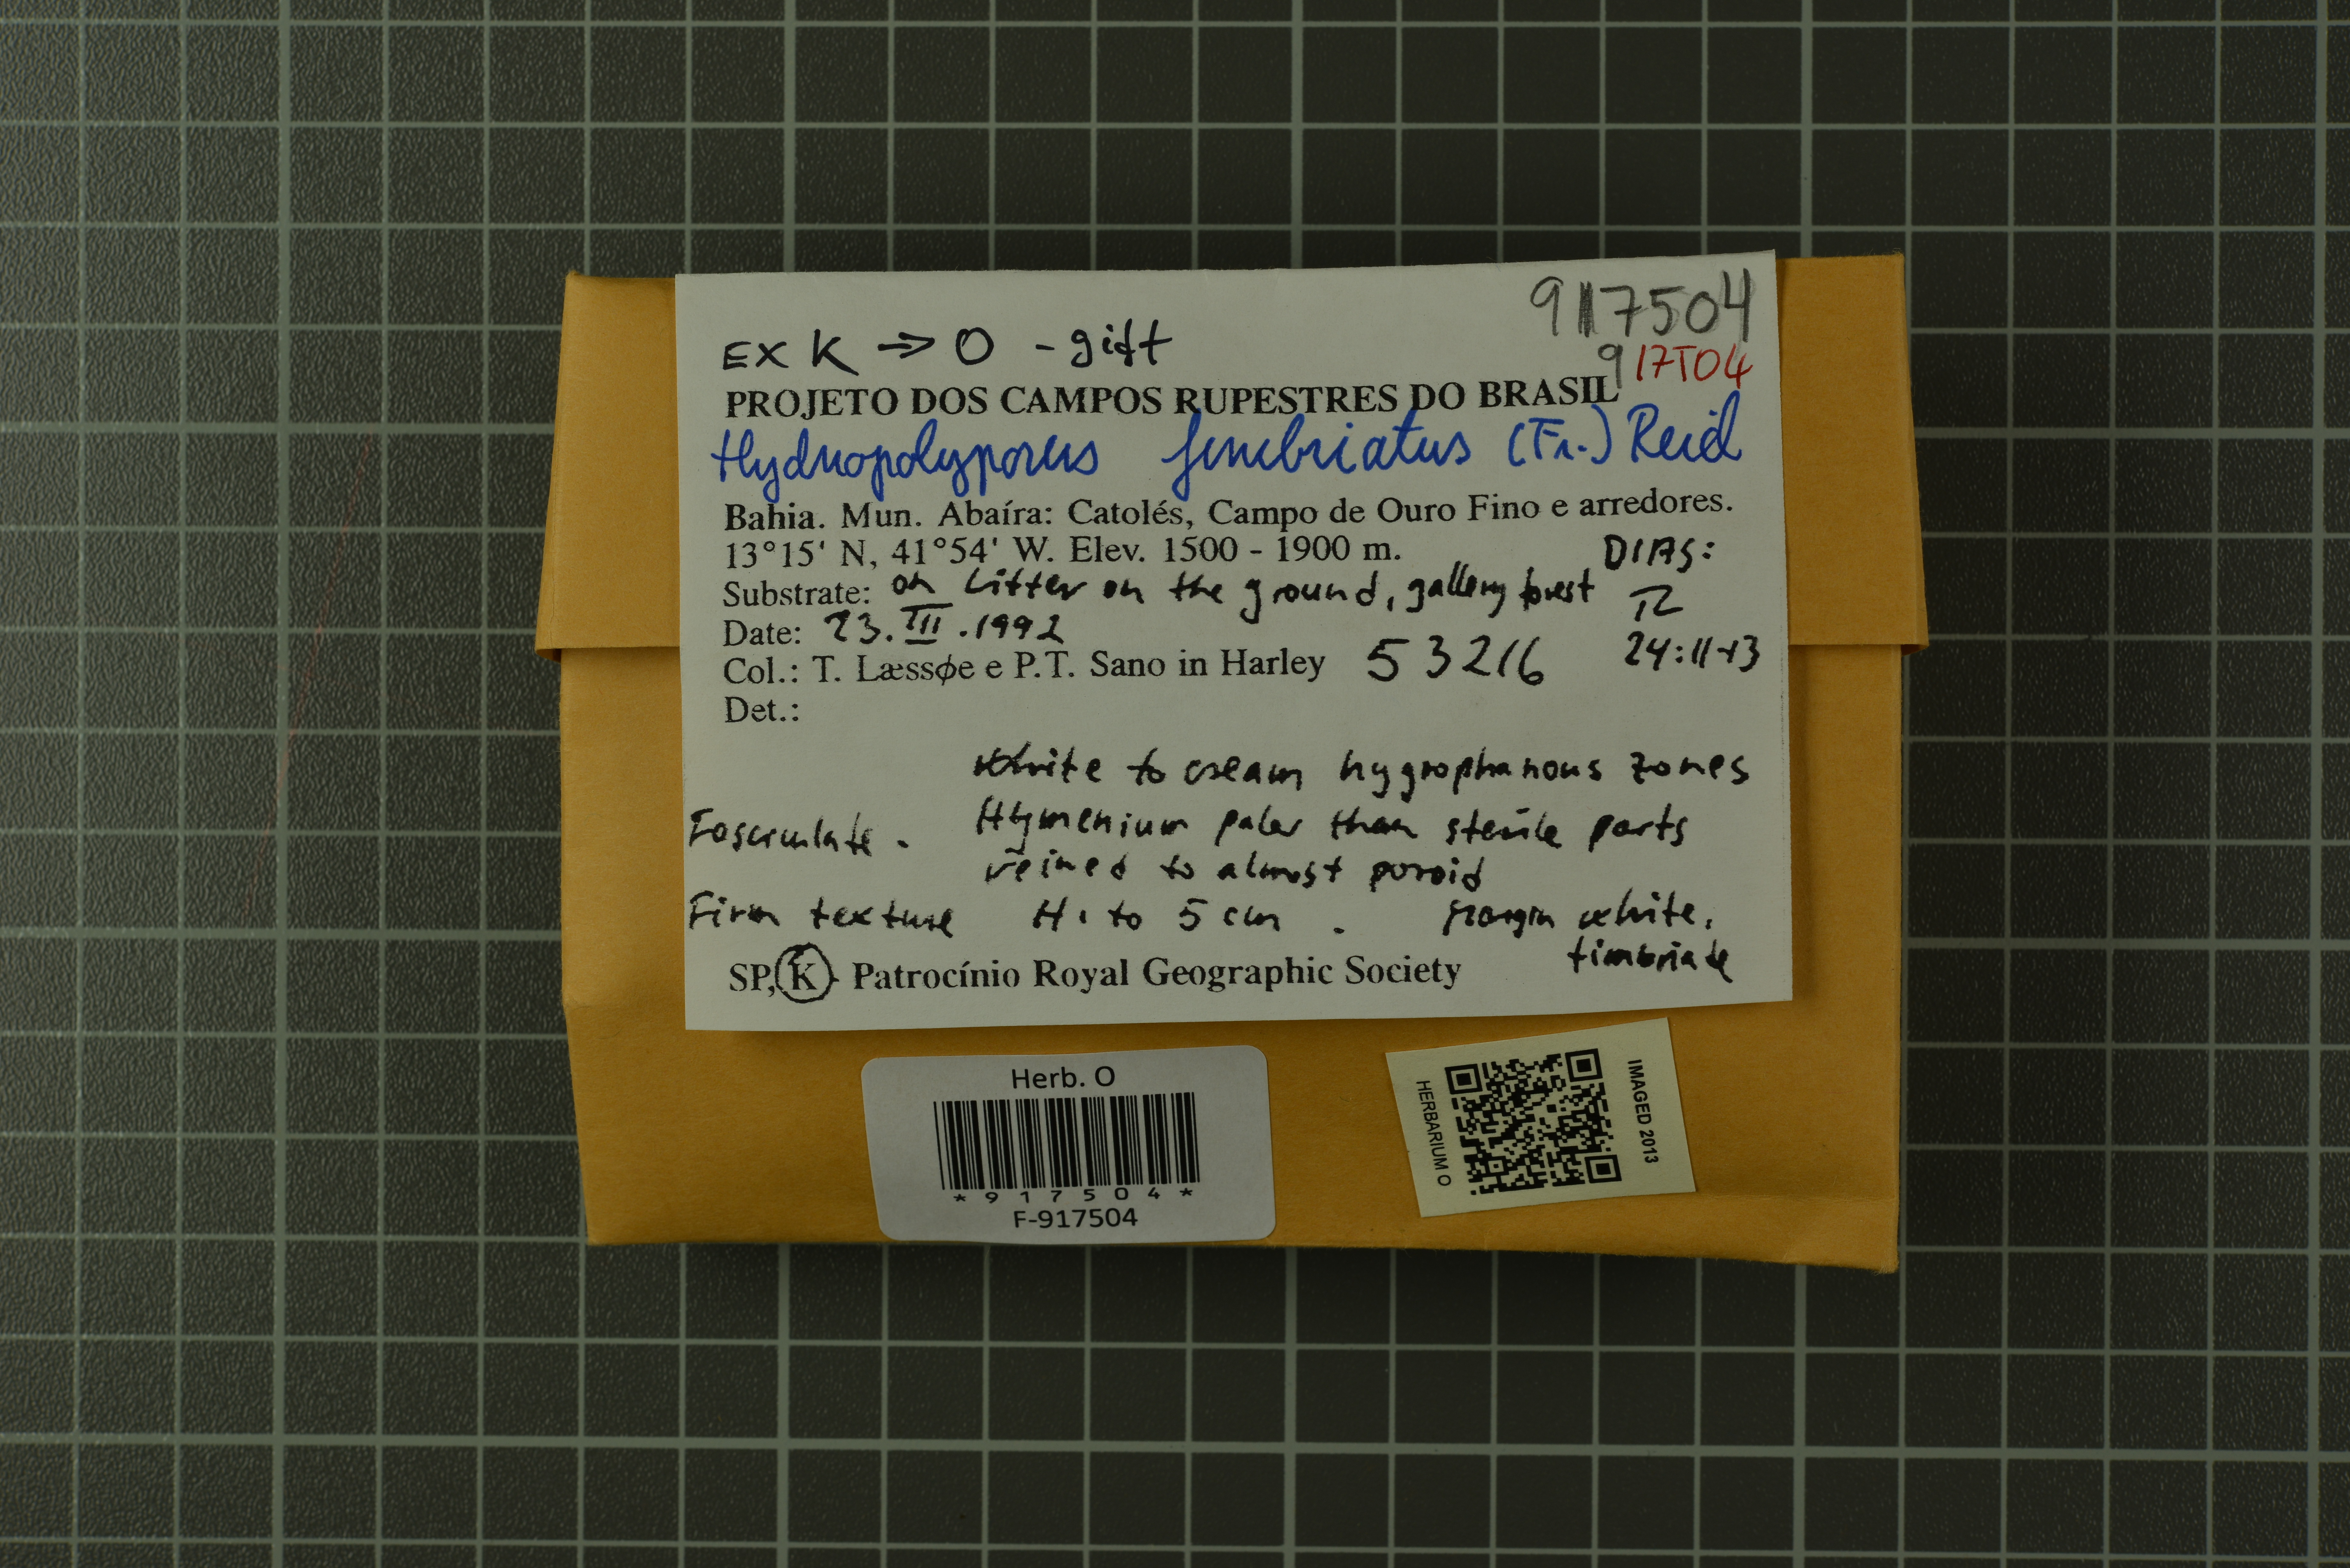 917504
EX K ⇒ O - gift
917504
PROJETO DOS CAMPOS RUPESTRES DO BRASIL
Hydnopolyporus fimbriatus (Fr.) Reid
Bahia. Mun. Abaíra: Catolés, Campo de Ouro Fino e arredores.
13°15' N, 41°54' W. Elev. 1500 - 1900 m.
DIAS:
Substrate: on litter on the ground, gallery forest
Date: 23.III.1992
Col.: T. Læssøe e P.T. Sano in Harley 53216
24:11-13
Det.:
White to cream hygrophanous zones
Fasciculate. Hymenium paler than sterile parts
veined to almost poroid
Firm texture H. to 5 cm. Margin white,
fimbriate
SP, K - Patrocínio Royal Geographic Society
Herb. O
*917504*
F-917504
HERBARIUM O
IMAGED 2013